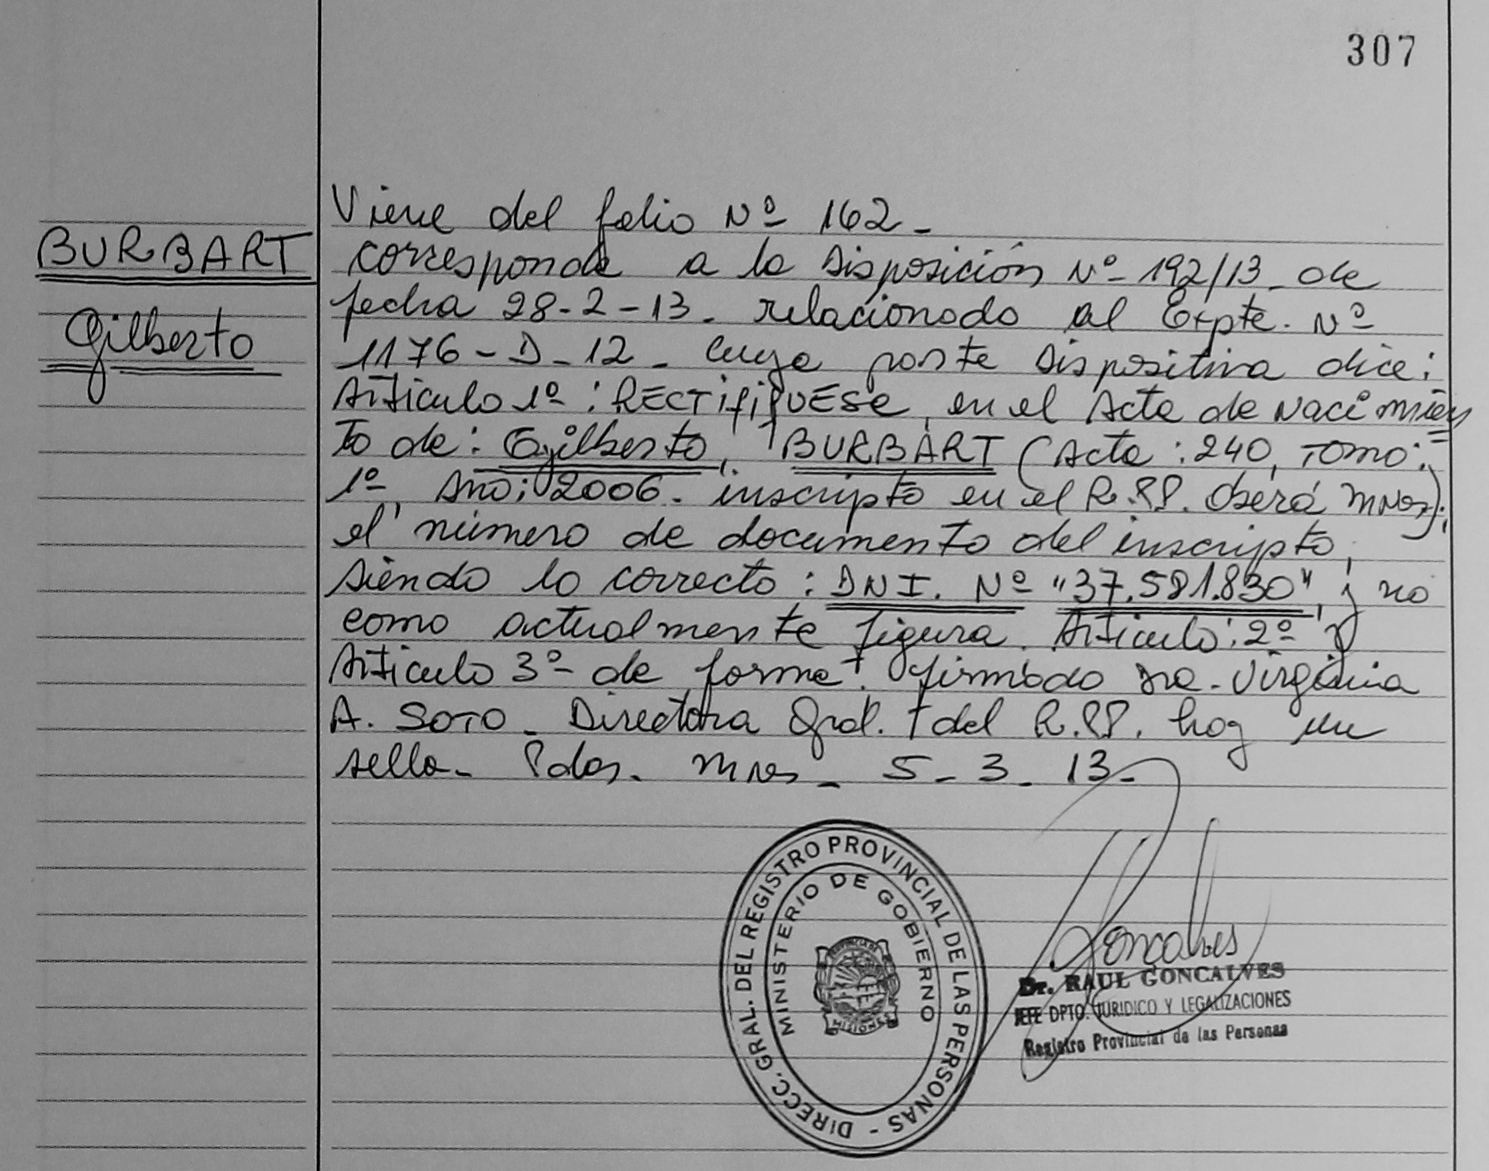 307
BURBART
Gilberto
Viene del folio Nº 162-
corresponde a la Disposición Nº 192/13 de
fecha 28-2-13. relacionado al Expte. Nº
1176-D-12- cuya parte Dispositiva dice:
Artículo 1º: RECTIFIQUESE, en el Acta de Nacimien
to de: Gilberto, BURBART (Acta: 240, Tomo:
1º, Año: 2006. inscripto en el R.PP. Oberá Mnes);
el número de documento del inscripto,
siendo lo correcto: DNI. Nº "37.581.830", y no
como actualmente figura. Artículo: 2º y
Artículo 3º de forma. firmado Dra. Virginia
A. SOTO - Directora Gral. del R.PP. hay un
sello- Pdas. Mnes- 5-3-13-
DIRECC. GRAL. DEL REGISTRO PROVINCIAL DE LAS PERSONAS -
MINISTERIO DE GOBIERNO
PROVINCIA DE
MISIONES
Goncalves
Dr. RAUL GONCALVES
JEFE DPTO. JURIDICO Y LEGALIZACIONES
Registro Provincial de las Personas